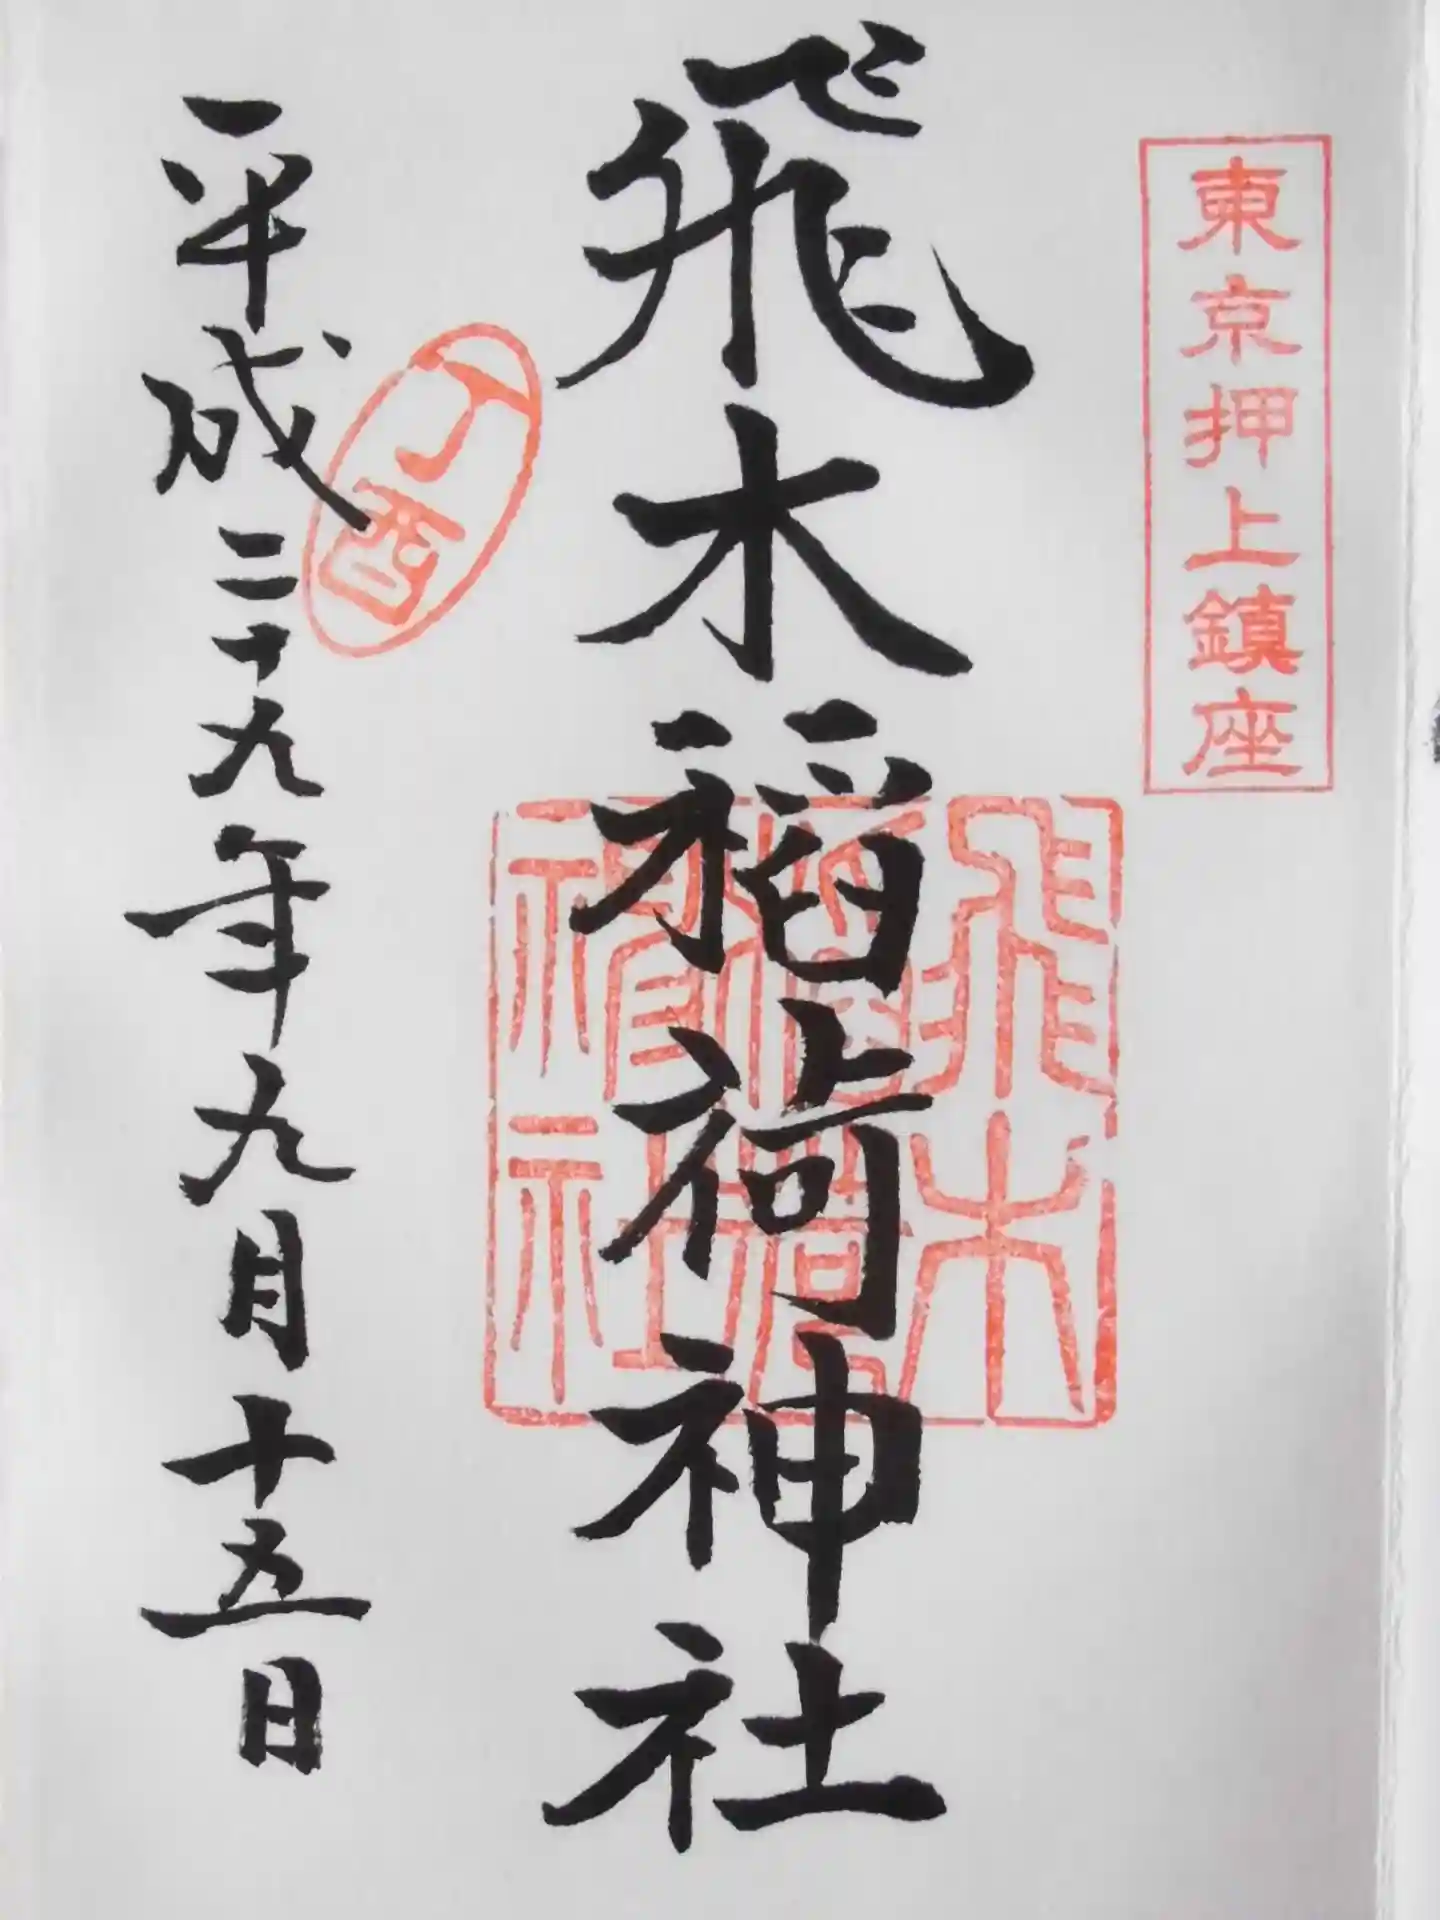 東京押上鎮座
飛木稲荷神社
飛木
稲荷
神社
丁酉
平成二十九年九月十五日